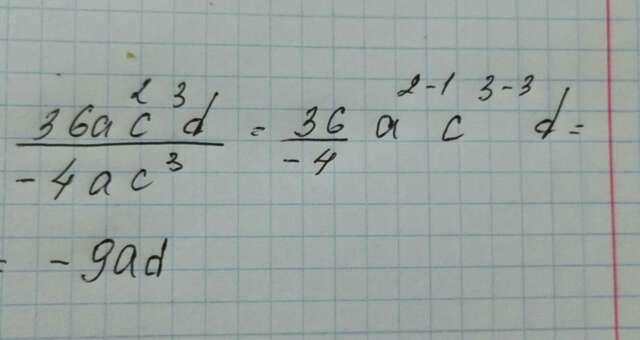 36a²c³d / -4ac³ = 36/-4 a²⁻¹ c³⁻³ d =
= -9ad